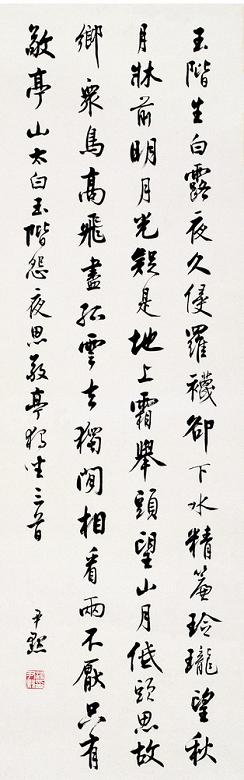 玉階生白露夜久侵羅襪卻下水精簾玲瓏望秋
月牀前明月光疑是地上霜舉頭望山月低頭思故
鄉衆鳥高飛盡孤雲去獨閒相看兩不厭只有
敬亭山太白玉階怨夜思敬亭獨坐三首
尹默